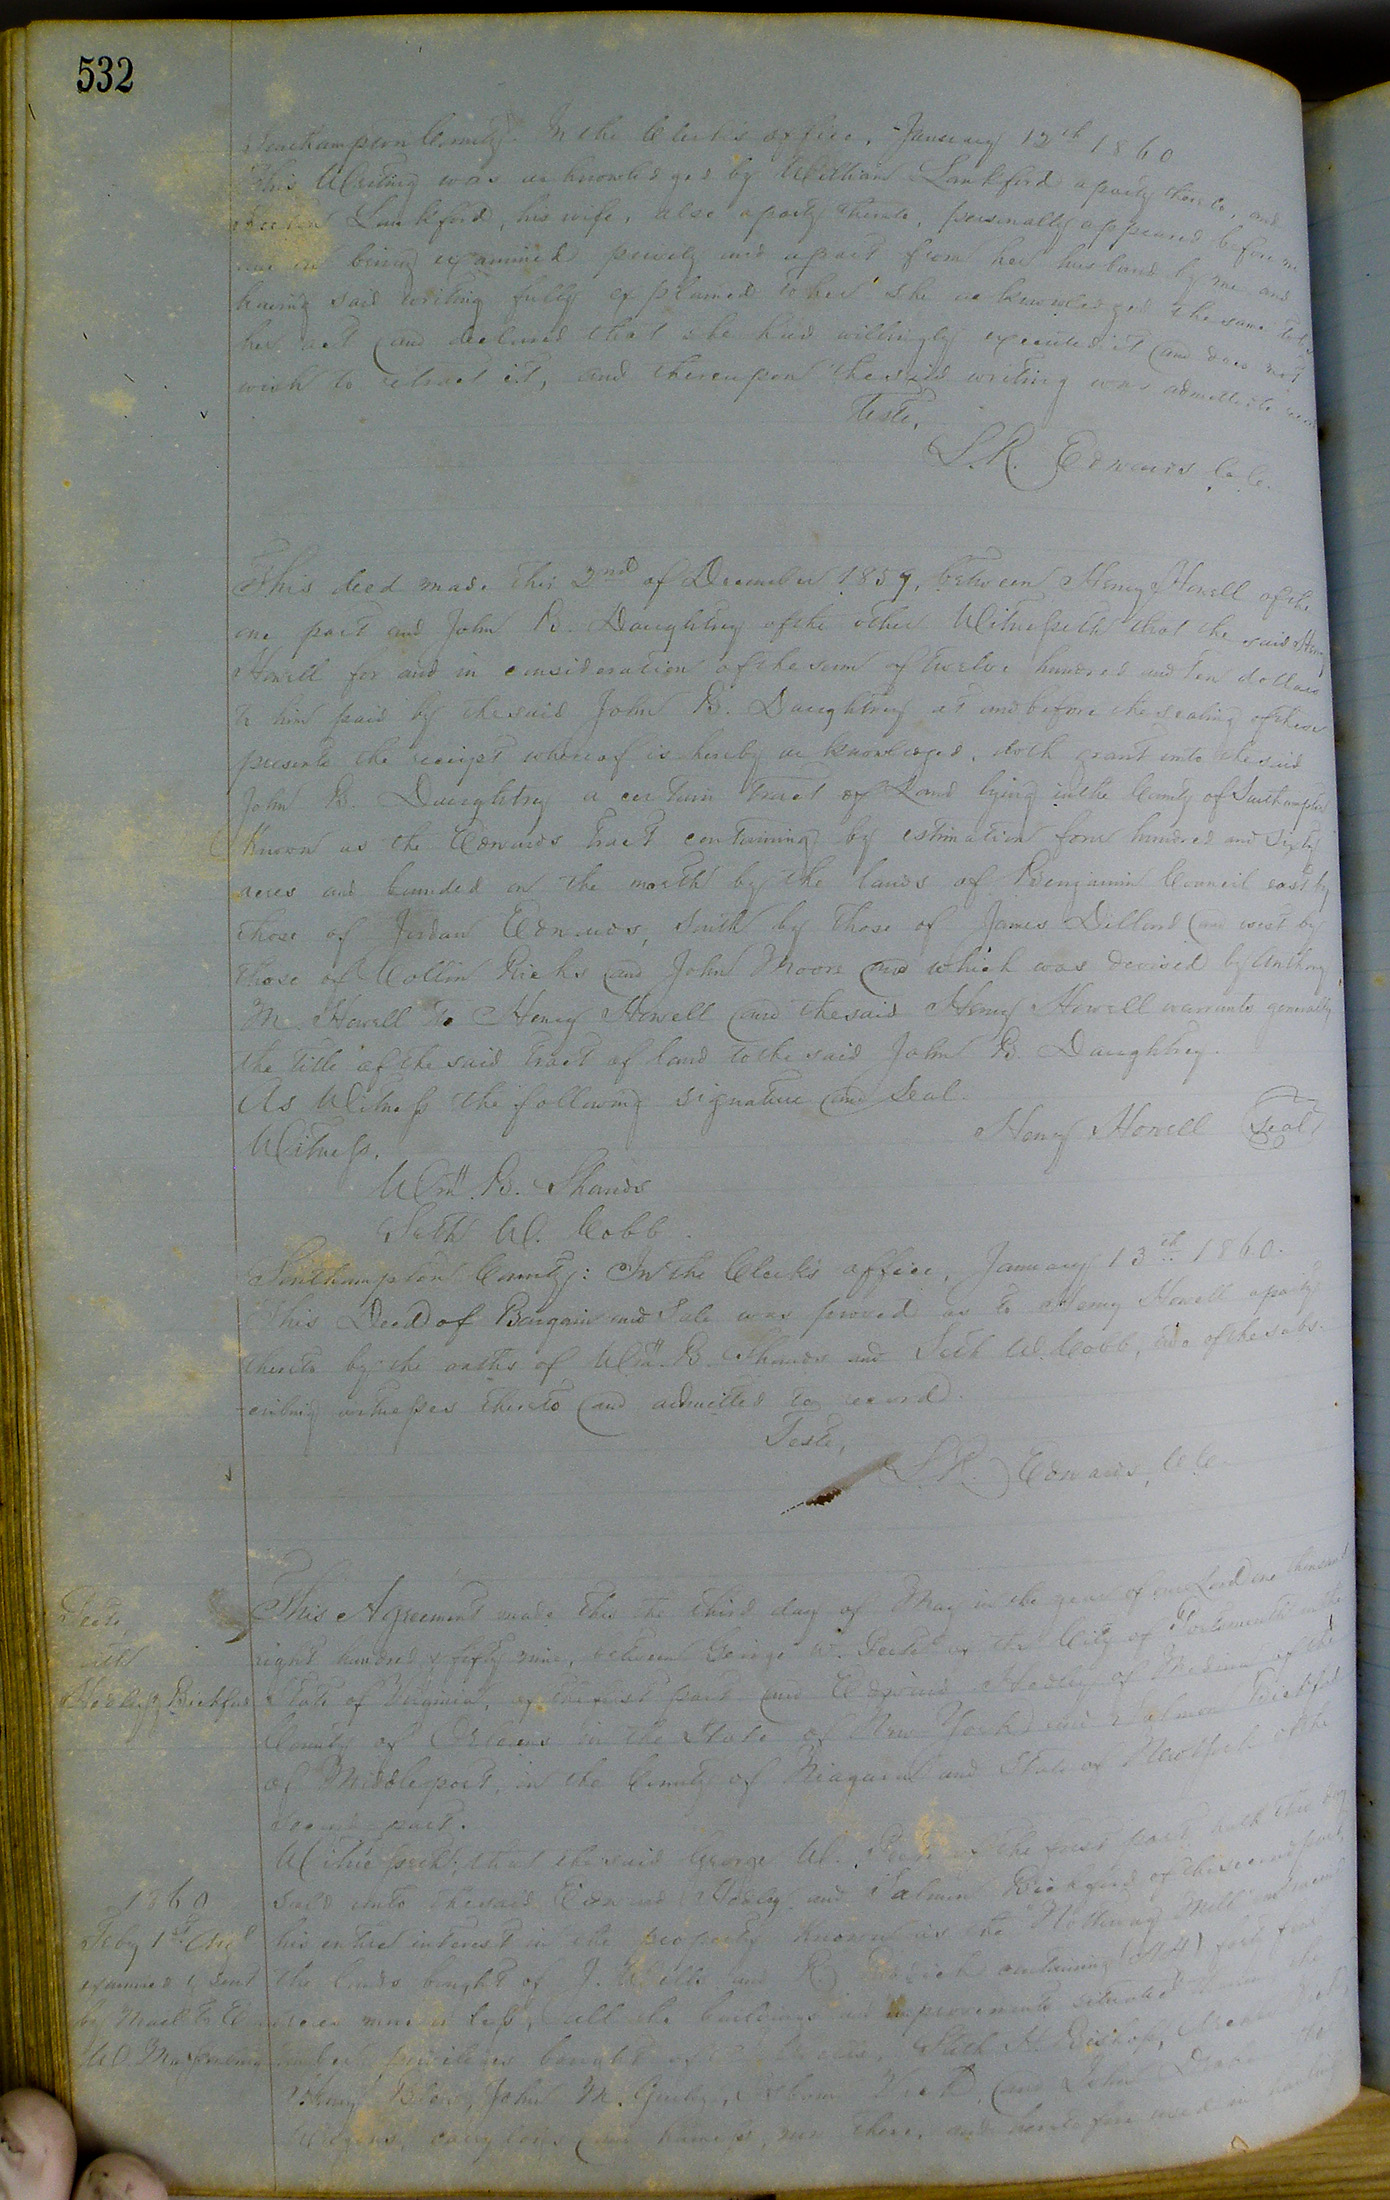 532
Southampton County. In the Clerk's office, January 12th 1860
This Writing was acknowledged by William Lankford a party thereto, and
Lankford, his wife, also a party thereto, personally appeared before me
and being examined privily and apart from her husband by me and
having said writing fully explained to her she acknowledged the same to be
her act and declared that she had willingly executed it and does not
wish to retract it, and thereupon the said writing was admitted to record
Teste,
L. R. Edwards C. C.
This deed made this 2nd of December 1859, between Henry Howell of the
one part and John B. Daughtrey of the other Witnesseth that the said Henry
Howell for and in consideration of the sum of twelve hundred and ten dollars
to him paid by the said John B. Daughtrey at and before the sealing of these
presents the receipt whereof is hereby acknowledged, doth grant unto the said
John B. Daughtrey a certain tract of Land lying in the County of Southampton
Known as the Edwards tract containing by estimation four hundred and sixty
acres and bounded on the north by the lands of Benjamin Council east by
those of Jordan Edwards, South by those of James Dillard and west by
those of Collin Ricks and John Moore and which was devised by Anthony
M. Howell to Henry Howell and the said Henry Howell warrants generally
the title of the said tract of land to the said John B. Daughtrey.
As Witness the following signature and Seal.
Henry Howell Seal
Witness.
Wm. B. Shands
Seth W. Cobb.
Southampton County: In the Clerk's office, January 13th 1860.
This Deed of Bargain and Sale was proved as to Henry Howell a party
thereto by the oaths of Wm. B. Shands and Seth W. Cobb, two of the subs-
-cribing witnesses thereto and admitted to record.
Teste,
L. R. Edwards, C. C.
This Agreement made this the third day of May in the year of our Lord one thousand
eight hundred & fifty nine, between George W. Peete of the City of Portsmouth in the
State of Virginia, of the first part and Edwind Healey of Medina of the
County of Orleans in the State of New York and Salmon Bickford
of Middleport, in the County of Niagara and State of New York of the
second part.
Witnesseth, that the said George W. Peete of the first part hath this day
sold unto the said Edwind Healey and Salmon Bickford of the second part,
his entire interest in the property known as the "Nottoway Mill"
the lands bought of J. Wills and R. containing (44) forty four
acres more or less, all the buildings and improvements situated
privileges bought of Seth H. Bishop,
Henry John M. Gurley, and John
carry logs and harness, and heretofore used in hauling
Peete
with
Healey & Bickford
1860
Feby 1st
examined & sent
by Mail to